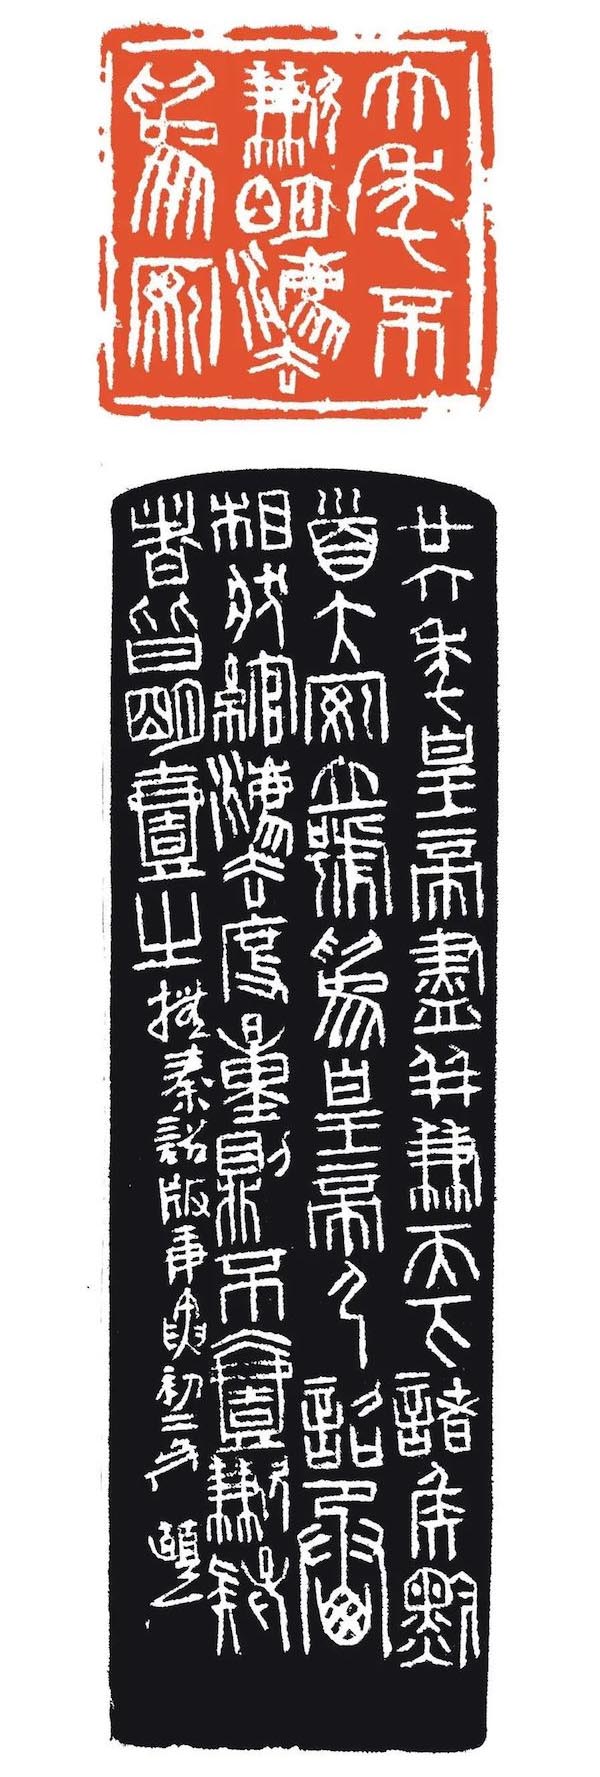 六年不
歉明灋
為安
廿六年皇帝盡并兼天下諸侯黔
首大安立號為皇帝乃詔丞
相狀綰灋度量則不壹歉疑
者皆明壹之橅秦詔版庚寅初二